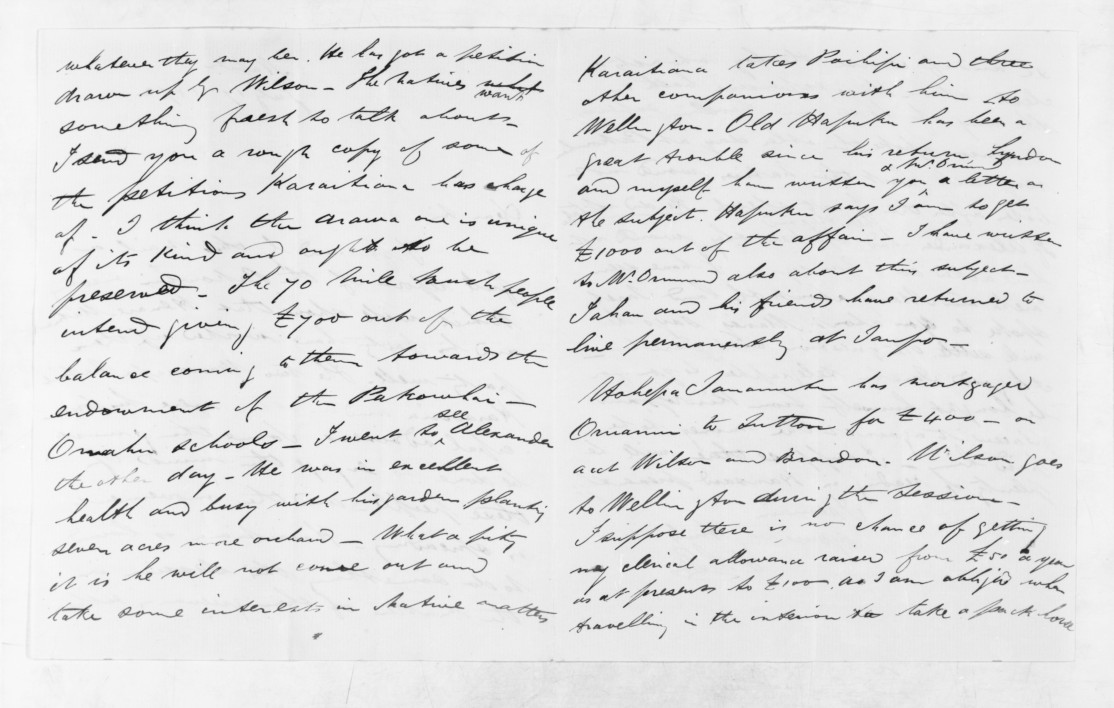 whatever they may be. He has got a petition
drawn up by Wilson - The Natives want
something fresh to talk about -
I send you a rough copy of some of
the petitions Karaitiana has charge
of - I think the Arawa one is unique
of its kind and ought to be
preserved - The 70 Mile bush people
intend giving £700 out of the
balance coming to them towards the
endowment of the Pakowhai -
Omahu schools - I went to see Alexander
the other day - He was in excellent
health and busy with his garden planting
seven acres more orchard - What a pity
it is he will not come out and
take some interest in Native matters
Karaitiana takes Poihipi and three
other companions with him to
Wellington - Old Hapuku has been a
great trouble since his return Lyndon
and myself have written you & Mr Ormond a letter on
the subject. Hapuku says I am to get
£1000 out of the affair - I have written
to Mr Ormond also about this subject -
Tahau and his friends have returned to
live permanently at Taupo -
Hohepa has mortgaged
to Sutton for £400 - on
acct Wilson and Brandon - Wilson goes
to Wellington during the Session -
I suppose there is no chance of getting
my clerical allowance raised from £50 a year
as at present to £100 as I am obliged when
travelling in the interior to take a pack horse